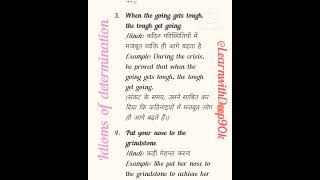 3. When the going gets tough,
the tough get going
Hindi: कठिन परिस्थितियों में
मजबूत व्यक्ति ही आगे बढ़ता है
Example: During the crisis,
he proved that when the
going gets tough, the tough
get going.
(संकट के समय, उसने साबित कर
दिया कि कठिनाइयों में मजबूत लोग
ही आगे बढ़ते हैं।)
4. Put your nose to the
grindstone
Hindi: कड़ी मेहनत करना
Example: She put her nose to
the grindstone to achieve her
Idioms of determination
@LearnwithDeep90k